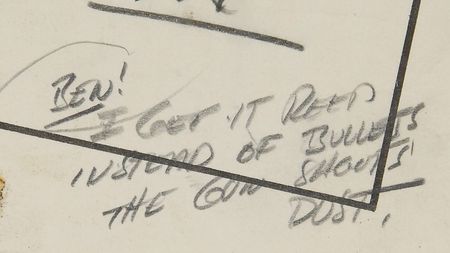 BEN!
I GET IT REED
INSTEAD OF BULLETS
THE GUN SHOOTS
DUST!